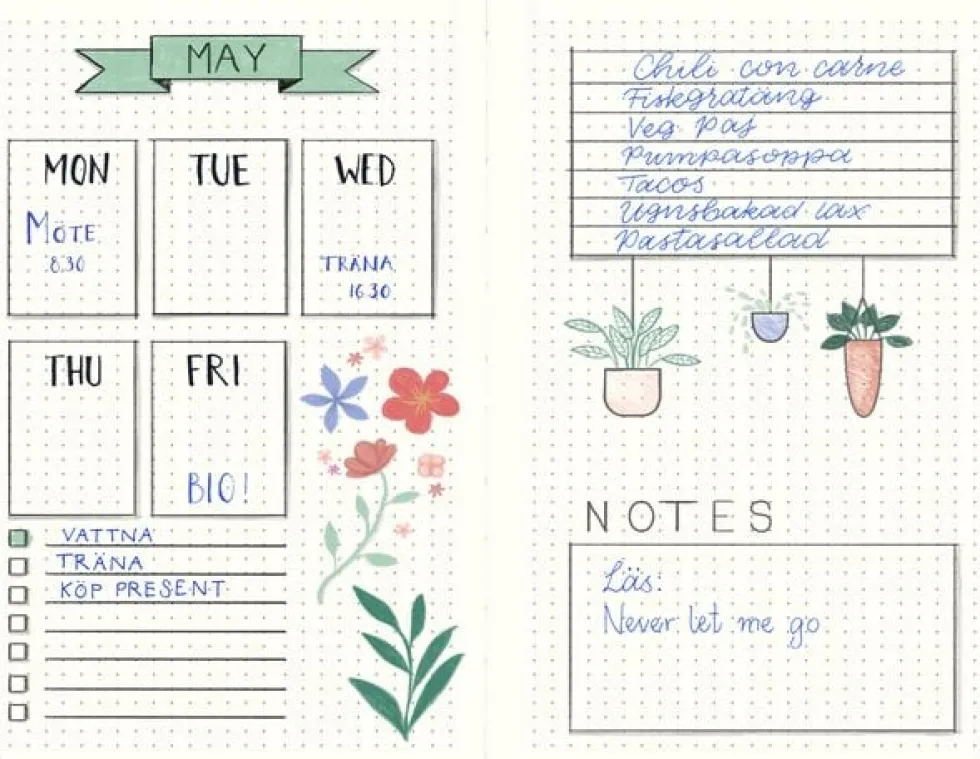 MAY
MON
MÖTE
8.30
TUE
WED
TRÄNA
16.30
THU
FRI
BIO!
VATTNA
TRÄNA
KÖP PRESENT
Chili con carne
Fiskegratäng
Veg. Paj
Pumpasoppa
Tacos
Ugnsbakad lax
Pastasallad
NOTES
Läs:
Never let me go